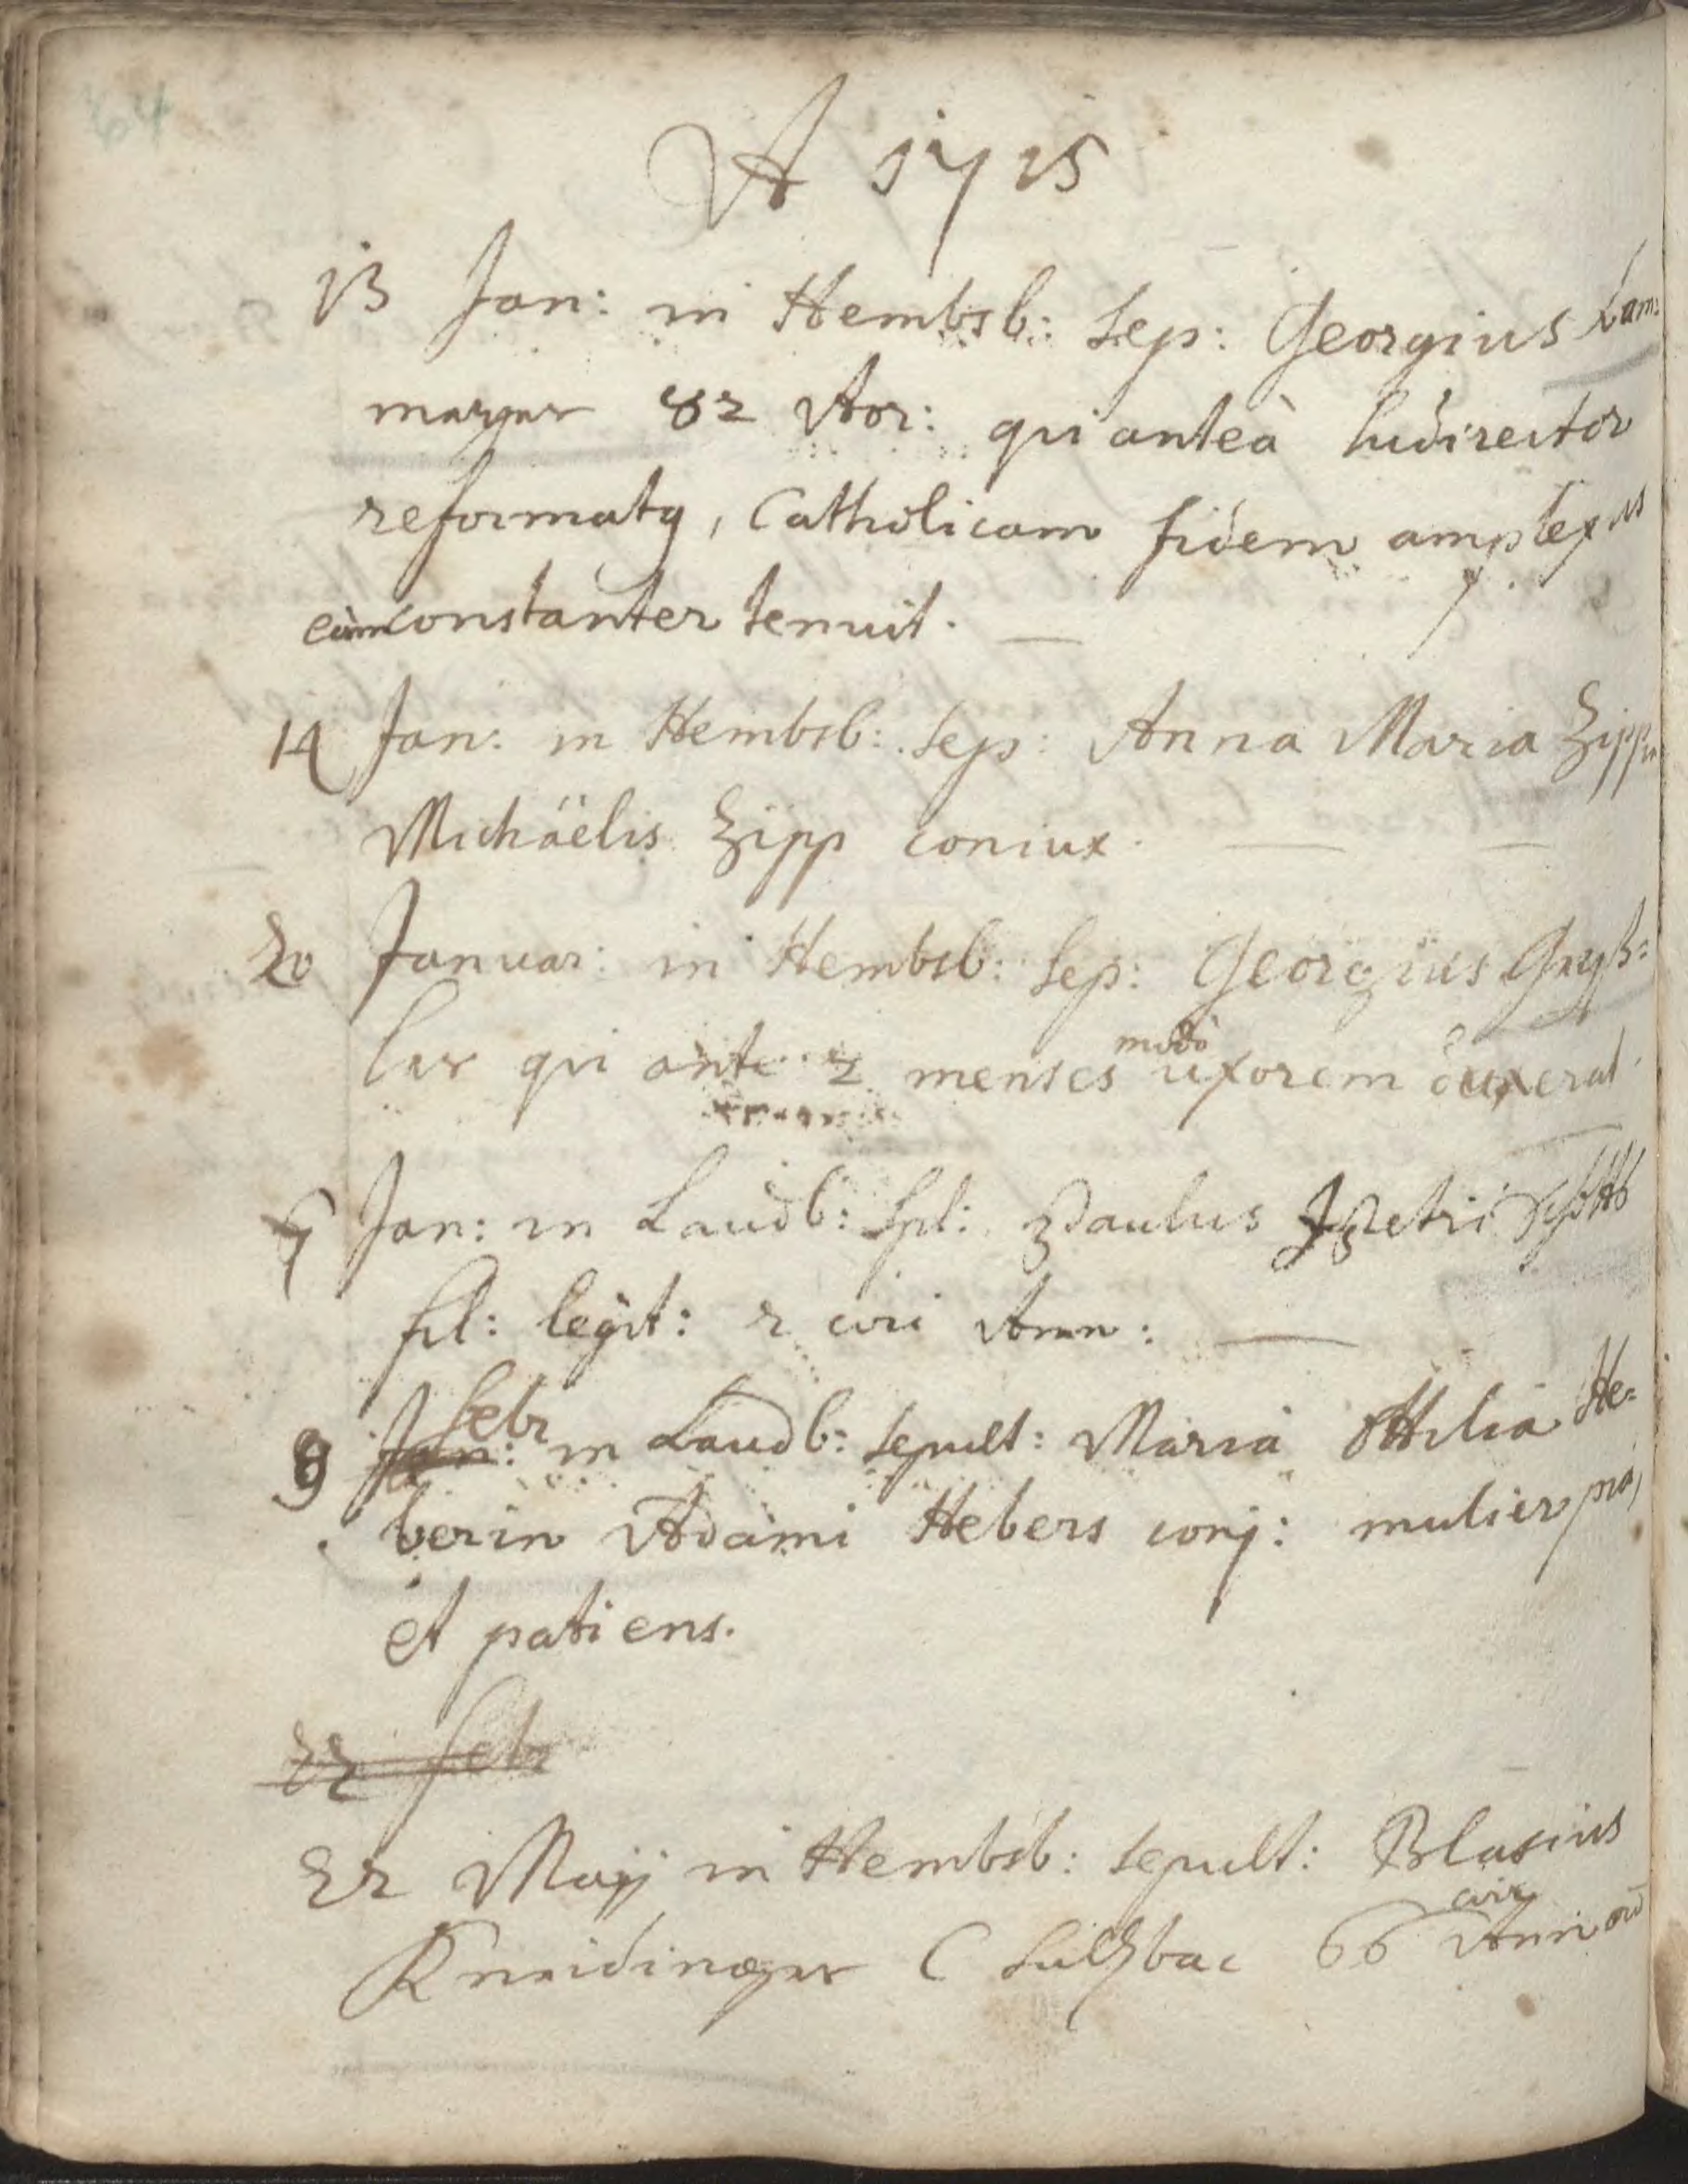 64
A 1715
13 Jan: in Hembsb: sep: Georgius Lam:
merger 82 Aor: qui anteà ludirector
reformatq, Catholicam fidem amplexus
eam constanter tenuit.
14 Jan: in Hembsb: sep: Anna Maria Zippin
Michäelis Zipp coniux.
20 Januar: in Hembsb: sep: Georgius Greyß=
ler qui ante 2 menses modò uxorem duxerat
7 Jan: in Laudb: spl: Paulus Petri
fil: legit: 2 circi Ann:
8 Jan: febr in Laudb: sepult: Maria Ottilia He=
berin Adami Hebers conj: mulier pia,
et patiens.
22 febr
22 Maij in Hembsb: sepult: Blasius
Kneidinger C Sultzbac 66 circ Ann